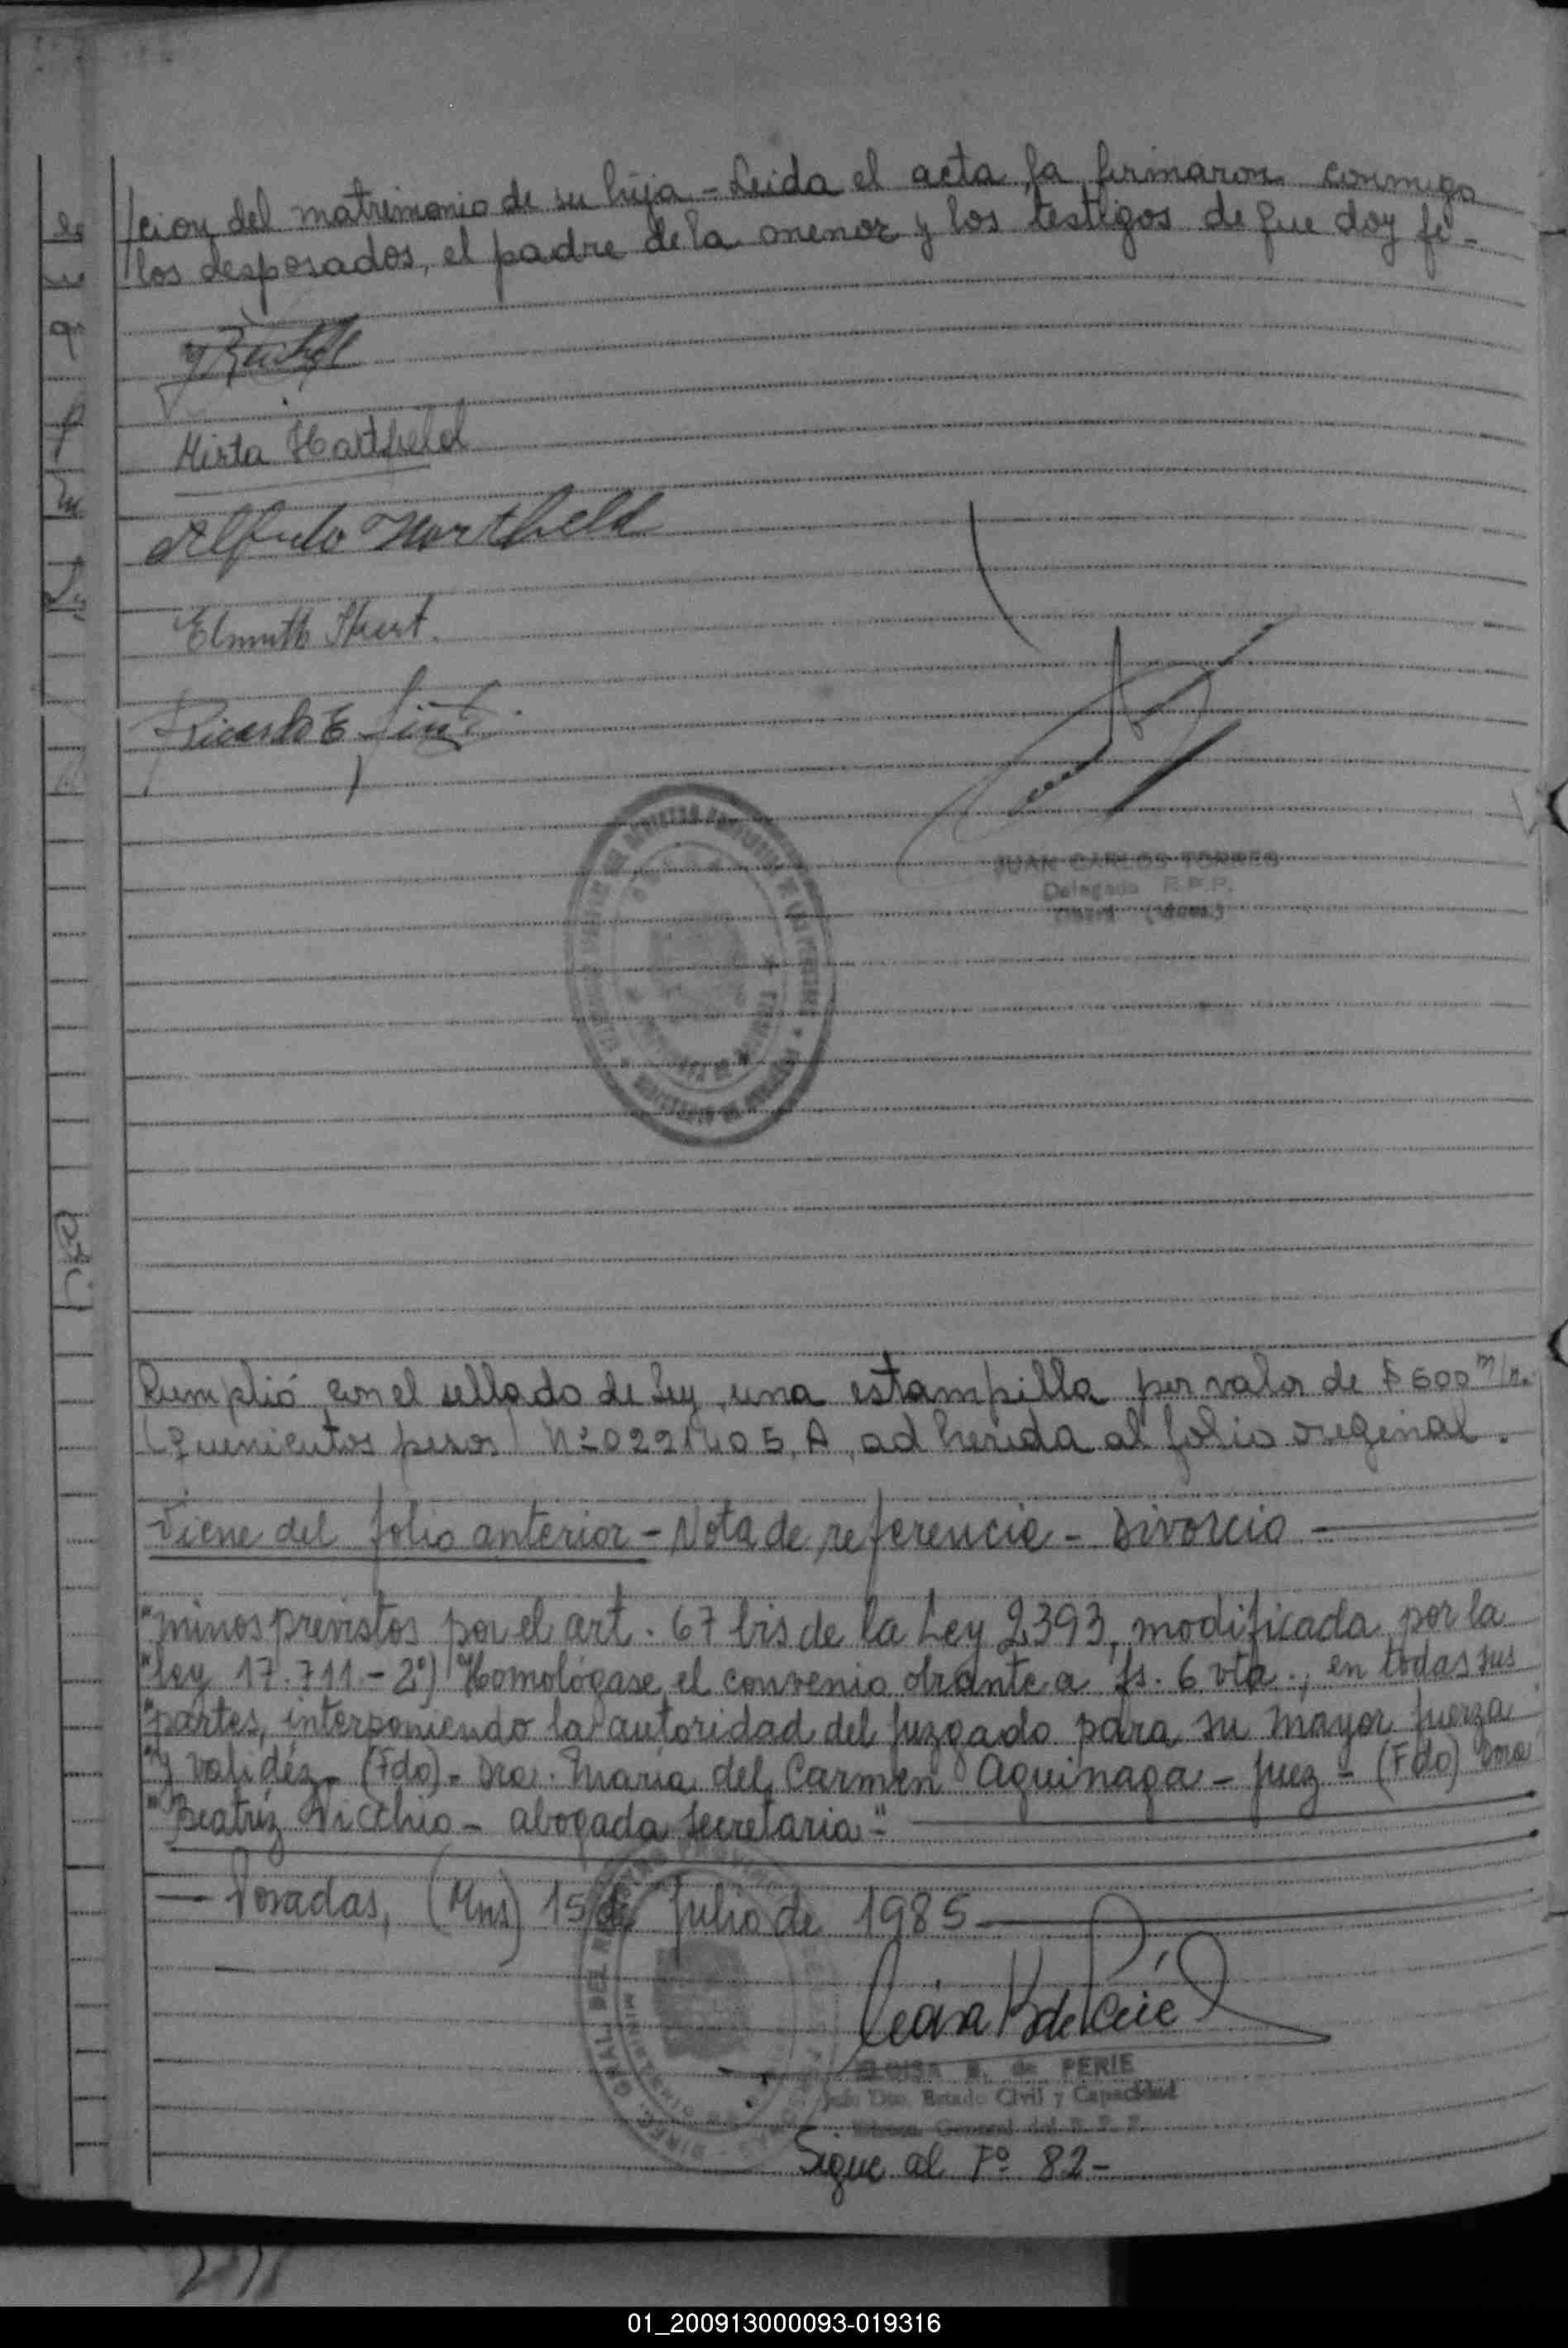 /cion del matrimonio de su hija - Leida el acta, la firmaron conmigo
los desposados, el padre de la menor y los testigos de que doy fe -
Mirta Hartfield
Alfredo Hartfield
Elmuth
Ricardo E
JUAN CARLOS TORRES
Delegado R.P.P.
(Mnes.)
Cumplió con el sellado de Ley, una estampilla por valor de $ 500 m/n.
(quinientos pesos) Nº 0221405, A, adherida al folio original.
Viene del folio anterior - Nota de referencia - Divorcio -
"minos previstos por el art. 67 bis de la Ley 2393, modificada por la
"ley 17.711 - 2º) Homológase el convenio obrante a fs. 6 vta., en todas sus
"partes, interponiendo la autoridad del Juzgado para su mayor fuerza
"y validéz - (Fdo) - Dra. María del Carmen Aguinaga - Juez - (Fdo) Dra
"Beatríz Vicchio - abogada secretaria -"
— Posadas, (Mns) 15 de Julio de 1985 —
ELOISA B. de PERIE
Jefe Dto. Estado Civil y Capacidad
Direcc. General del R. P. P.
Sigue al Fº 82 -
01_200913000093-019316